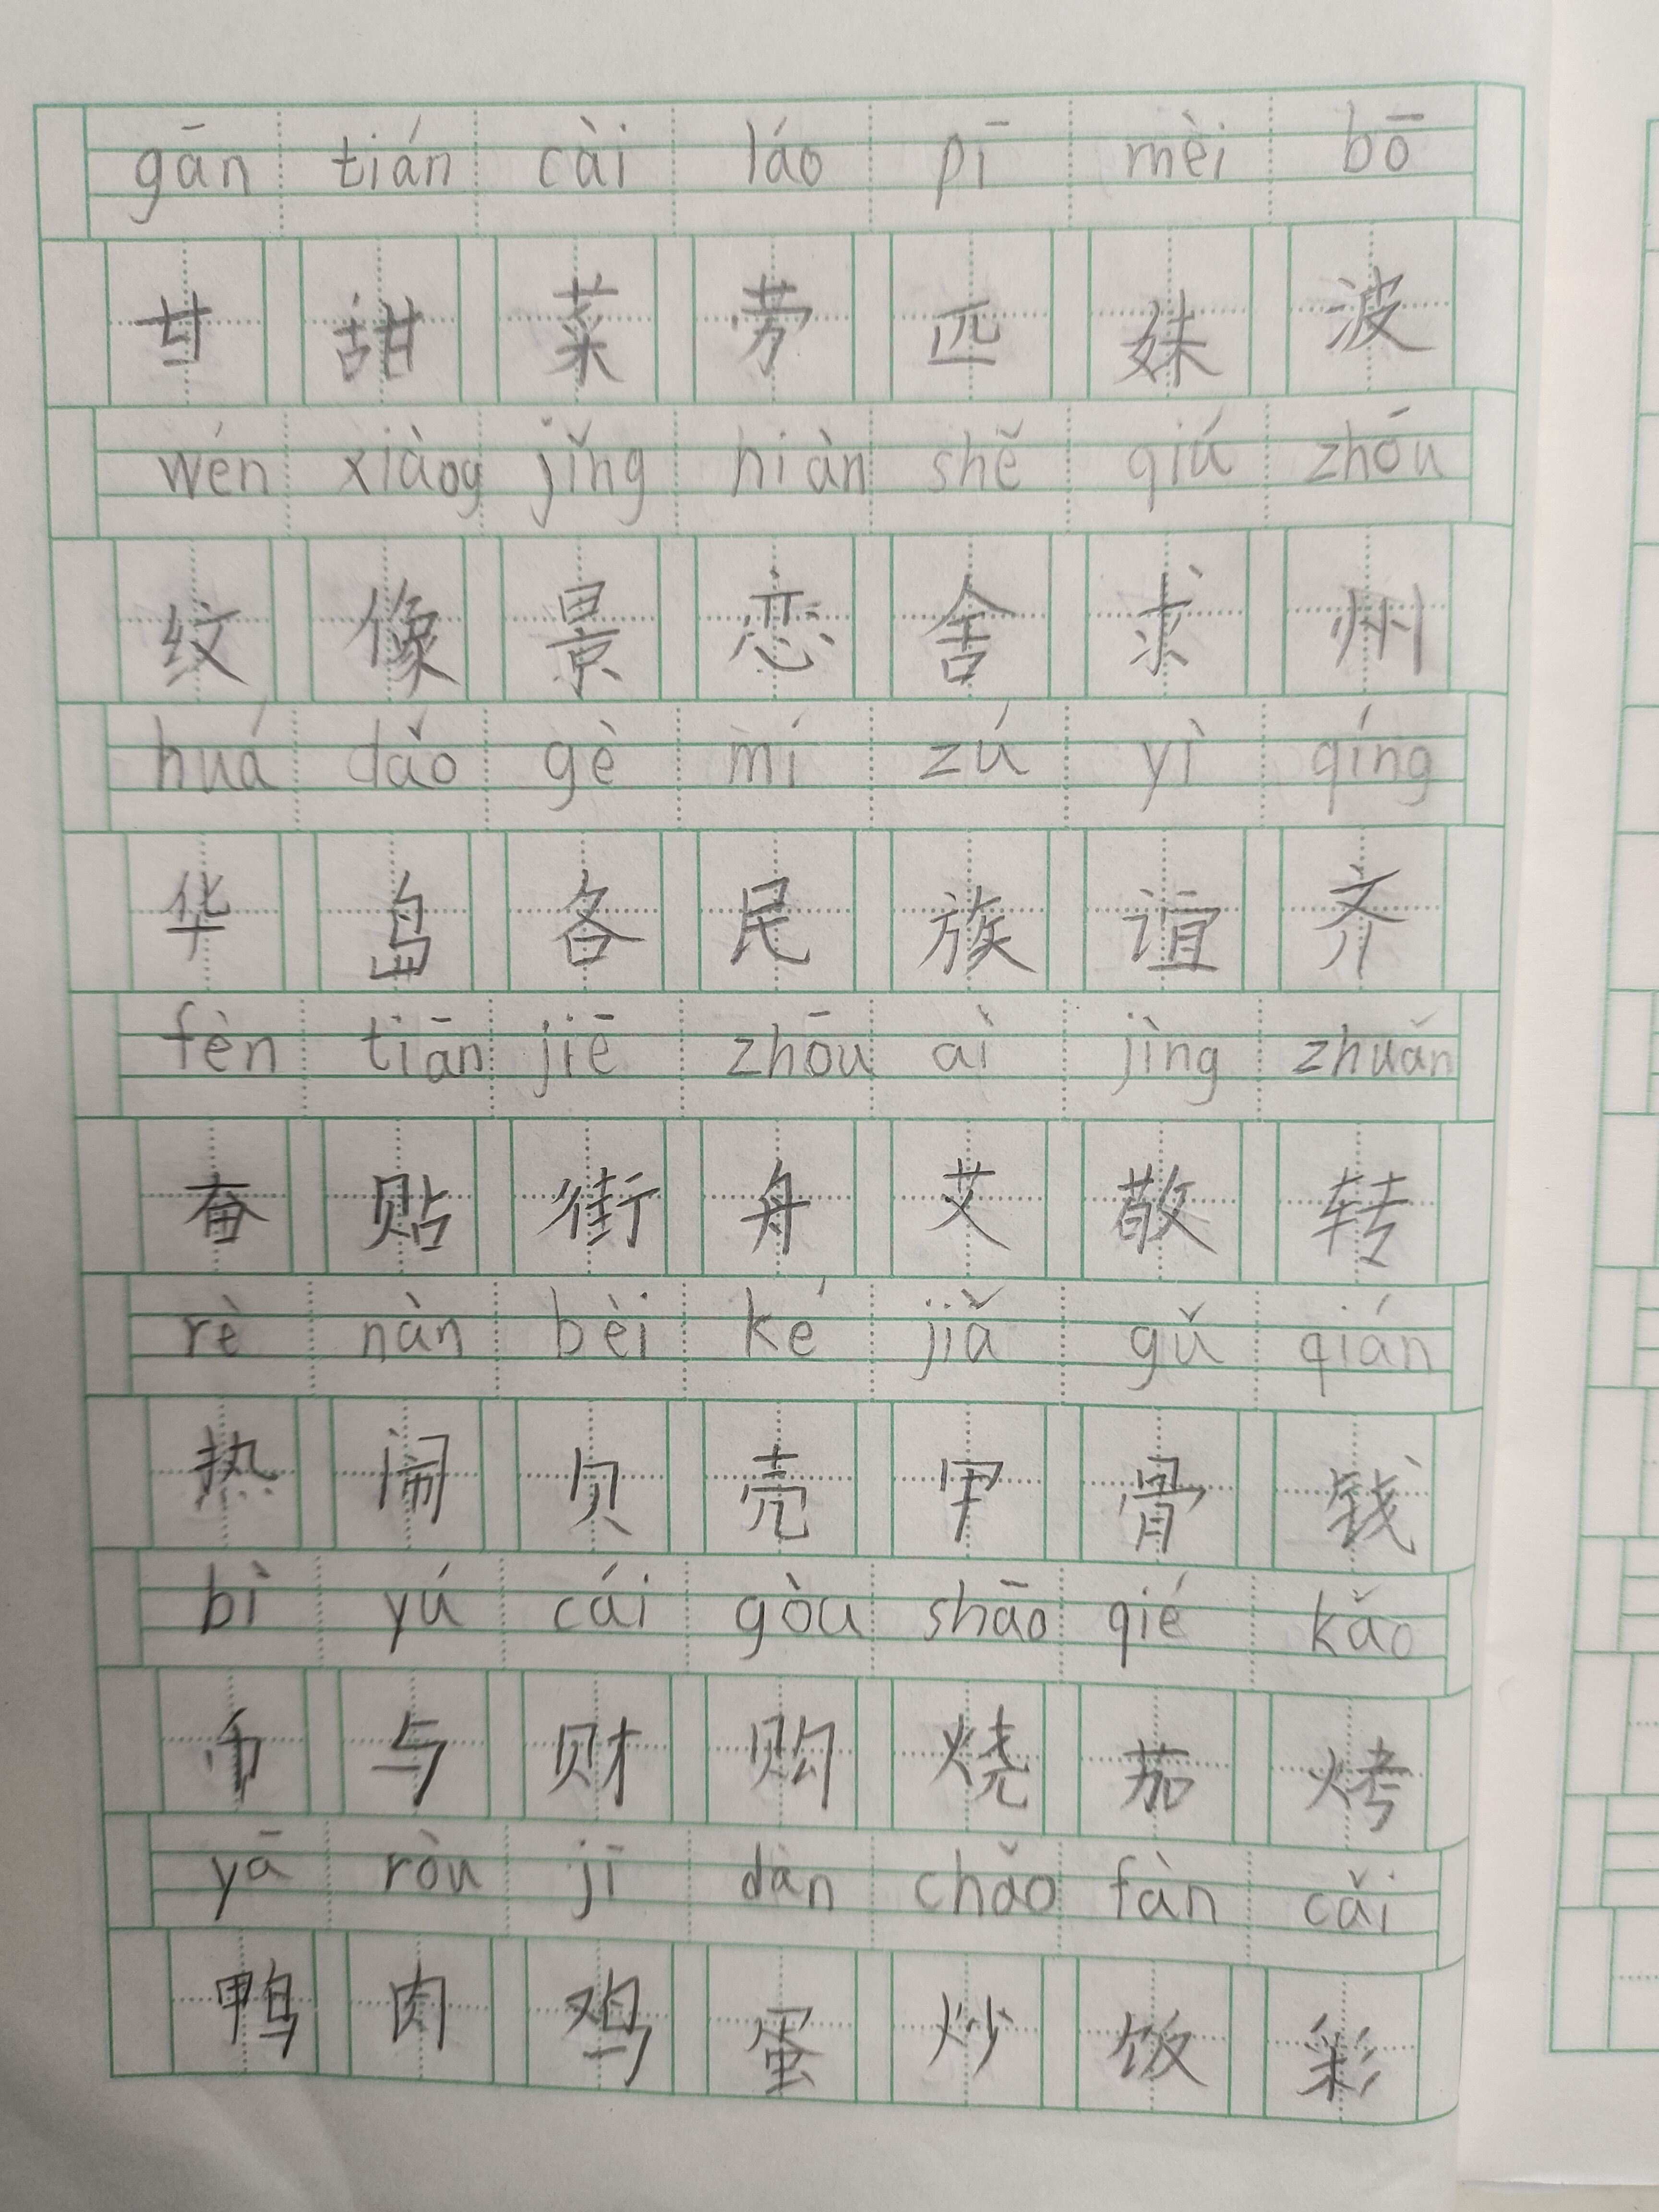 gān tián cài láo pī mèi bō
甘 甜 菜 劳 匹 妹 波
wén xiàog jǐng hiàn shě qiú zhōu
纹 像 景 恋 舍 求 州
huá dǎo gè mí zú yì qíng
华 岛 各 民 族 谊 齐
fèn tiān jiē zhōu ài jìng zhuǎn
奋 贴 街 舟 艾 敬 转
rè nàn bèi ké jiǎ gǔ qián
热 闹 贝 壳 甲 骨 钱
bì yú cái gòu shāo qié kǎo
币 与 财 购 烧 茄 烤
yā ròu jī dàn chǎo fàn cǎi
鸭 肉 鸡 蛋 炒 饭 彩